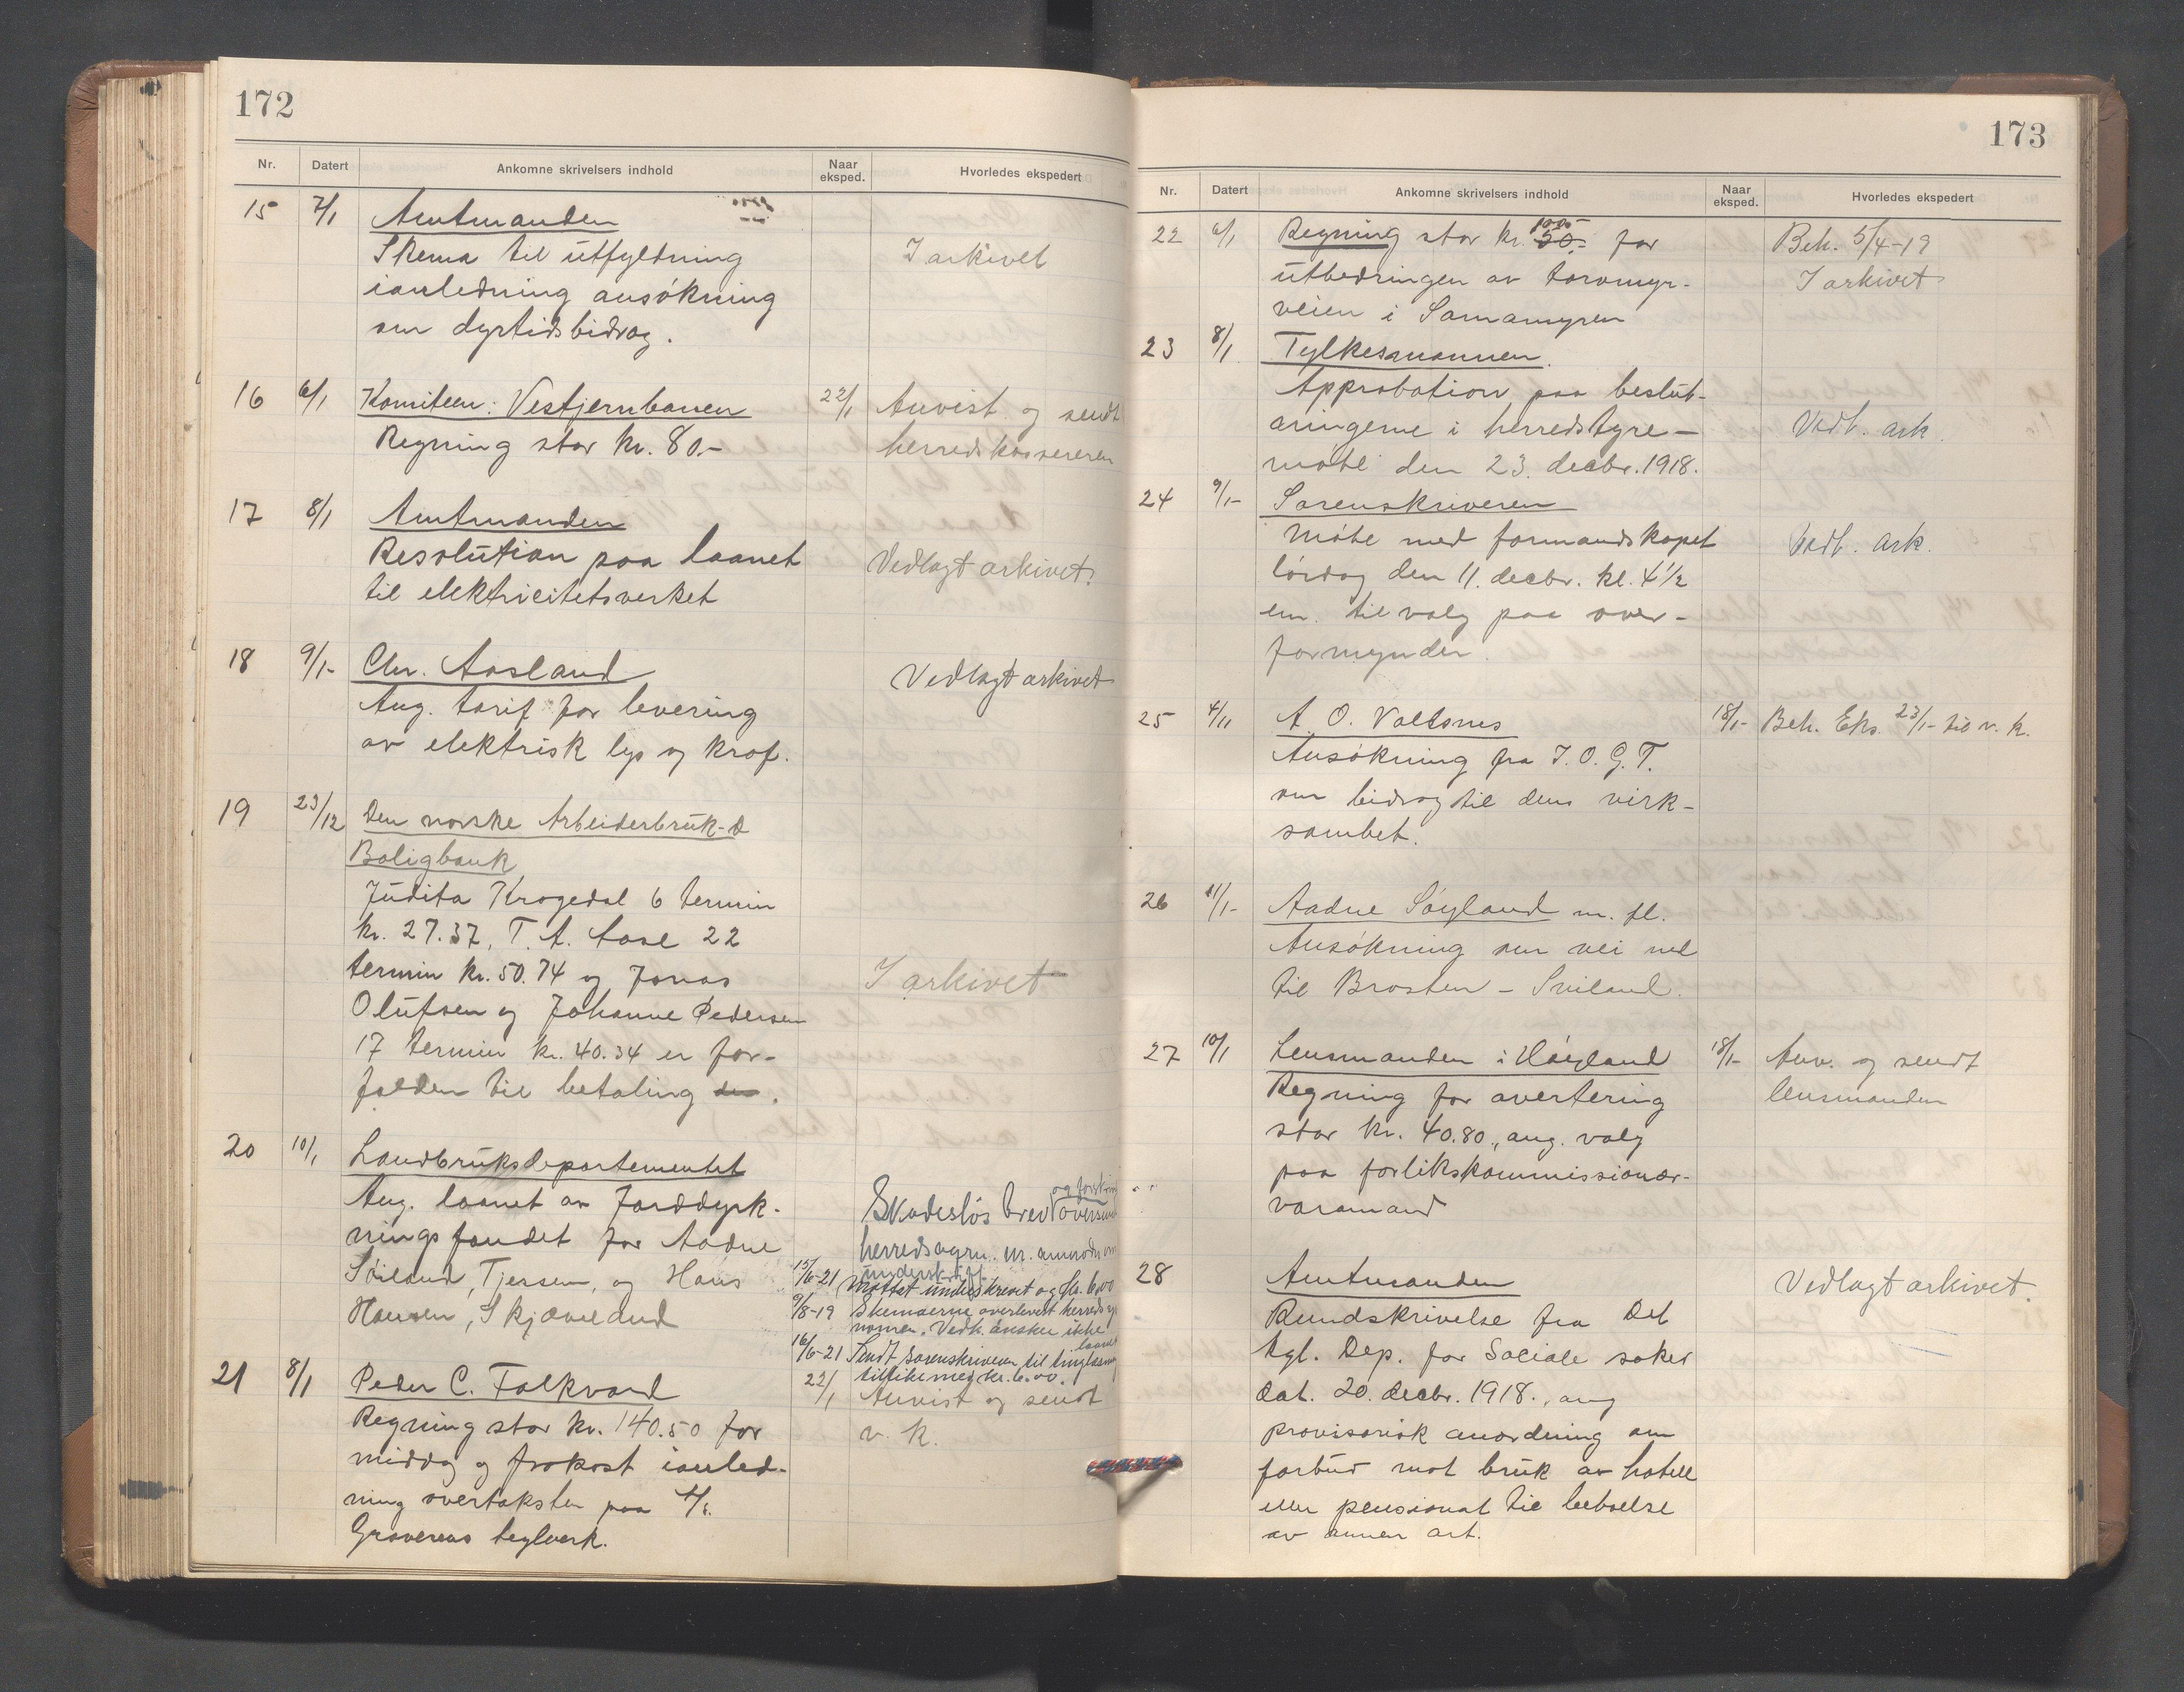 172
Nr. Datert Ankomne skrivelsers indhold Naar eksped. Hvorledes ekspedert
15 7/1 Amtmanden
Skema til utfyldning I arkivet
ianledning ansökning
om dyrtidsbidrag.
16 6/1 Komiteen: Vestjernbanen 22/1 Anvist og sendt
Regning stor kr. 80.- herredskassereren
17 8/1 Amtmanden
Resolution paa laanet Vedlagt arkivet.
til elektricitetsverket
18 9/1- Chr. Aasland Vedlagt arkivet
Ang. tarif for levering
av elektrisk lys og kraf.
19 23/12 Den norske Arbeiderbruk- &
Boligbank
Judita Krogedal 6 termin
kr. 27.37, T. A. Aase 22
termin kr. 50.74 og Jonas I arkivet
Olufsen og Johanne Pedersen
17 termin kr. 40.34 er for-
falden til betaling
20 10/1 Landbruksdepartementet
Ang. laanet av Jorddyrk- Skadesløs brev
ningsfondet for Aadne herredsagrn.
Söiland, Tjessem, og Hans 15/6-21 Mottat underskrevet og kr. 6,00
Hansen, Skjæveland 9/8-19 Skemaerne overlevert herredsag
nomen. Vedk. ønsker ikke laanet
16/6-21 Sendt sorenskriveren til tinglæsning
tillikemed kr. 6.00.
21 8/1 Peder C. Falkvard 22/1 Anvist og sendt
Regning stor kr. 140.50 for v. k.
middag og frokost ianled-
ning overtaksten paa
Graverens teglverk.
173
Nr. Datert Ankomne skrivelsers indhold Naar eksped. Hvorledes ekspedert
22 6/1 Regning stor kr. for Beh. 5/4-19
utbedringen av torvmyr- I arkivet
veien i Samamyren
23 8/1 Fylkesmannen.
Approbation paa beslut-
ningerne i herredstyre- Vedl. ark.
møte den 23. decbr. 1918.
24 9/1- Sorenskriveren
Møte med formandskapet Vedl. Ark.
lördag den 11. decbr. kl. 4 1/2
em. til valg paa over-
formynder.
25 4/11 A. O. 18/1- Beh. Eks. 23/1- til v. k.
Ansökning fra I. O. G. T.
om bidrag til dens virk-
somhet.
26 11/1- Aadne Söyland m. fl.
Ansökning om vei ned
til Brosten - Sviland.
27 10/1 Lensmanden i Höyland 18/1- Anv. og sendt
Regning for avertering lensmanden
stor kr. 40.80, ang. valg
paa forlikskommissionær-
varamand
28 Amtmanden Vedlagt arkivet.
Rundskrivelse fra Det
kgl. Dep. for Sociale saker
dat. 20. decbr. 1918., ang
provisorisk anordning om
forbud mot bruk av hotell
eller pensionat til beboelse
av annen art.